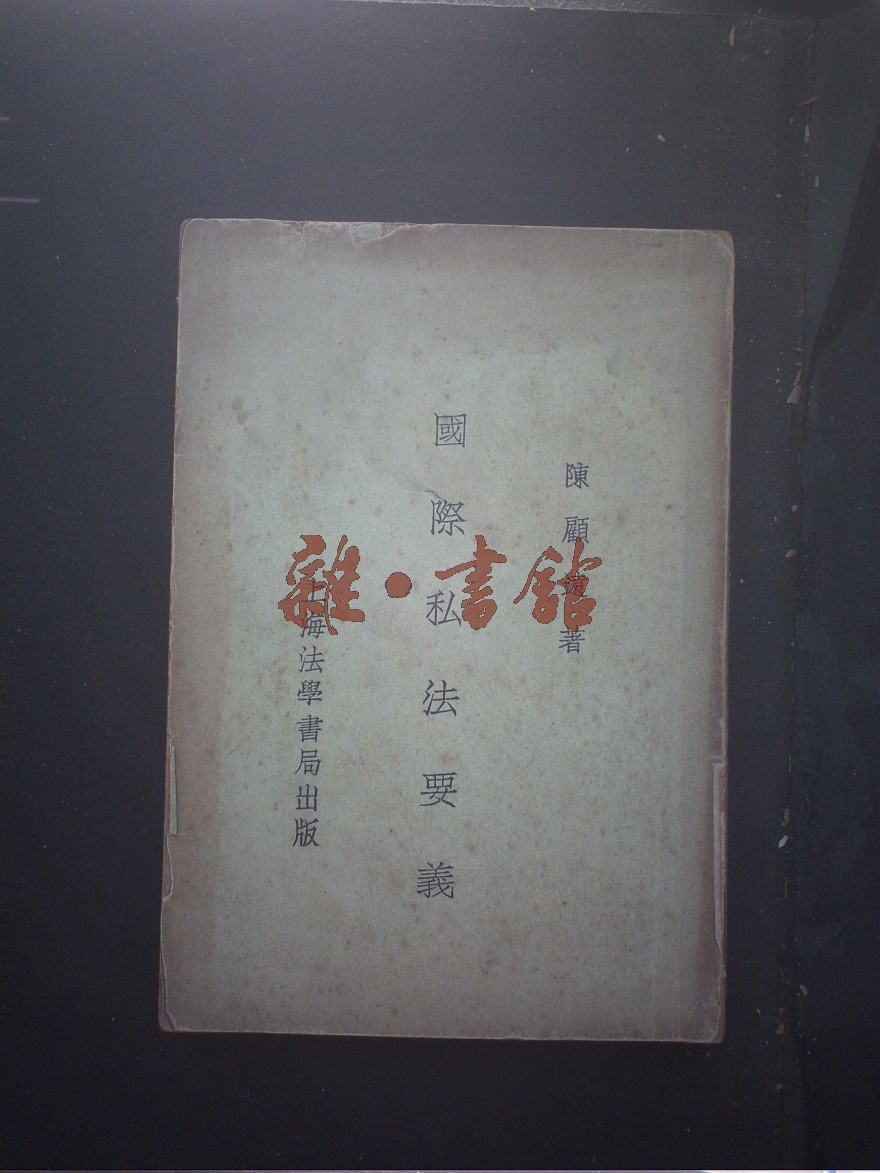 陳顧遠著
國際私法要義
上海法學書局出版
雜·書館